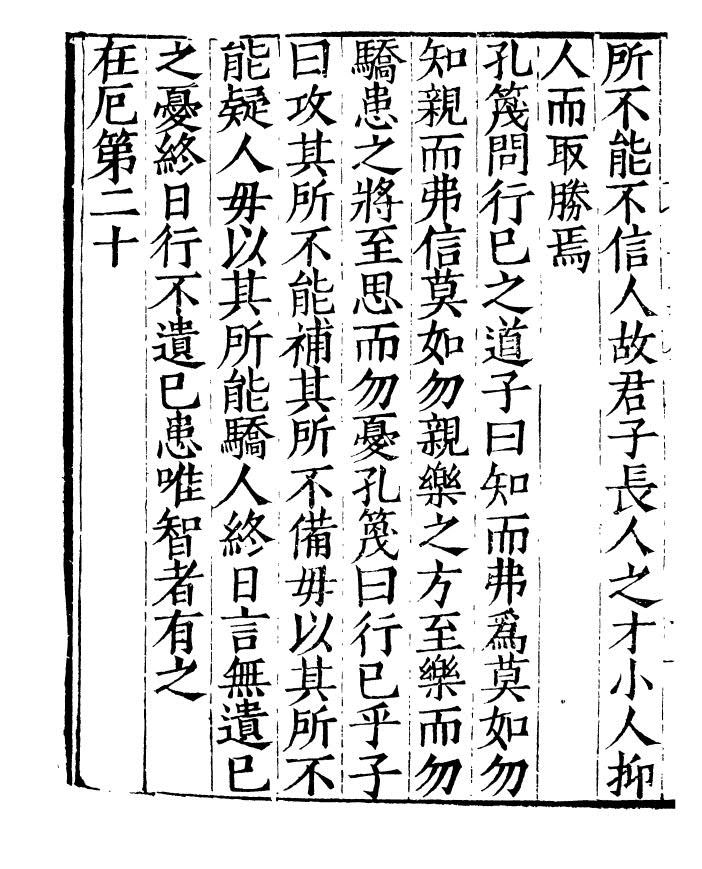 所不能不信人故君子長人之才小人抑
人而取勝焉
孔篾問行已之道子曰知而弗爲莫如勿
知親而弗信莫如勿親樂之方至樂而勿
驕患之將至思而勿憂孔篾曰行已乎子
曰攻其所不能補其所不備毋以其所不
能疑人毋以其所能驕人終日言無遺已
之憂終日行不遺已患唯智者有之
在厄第二十